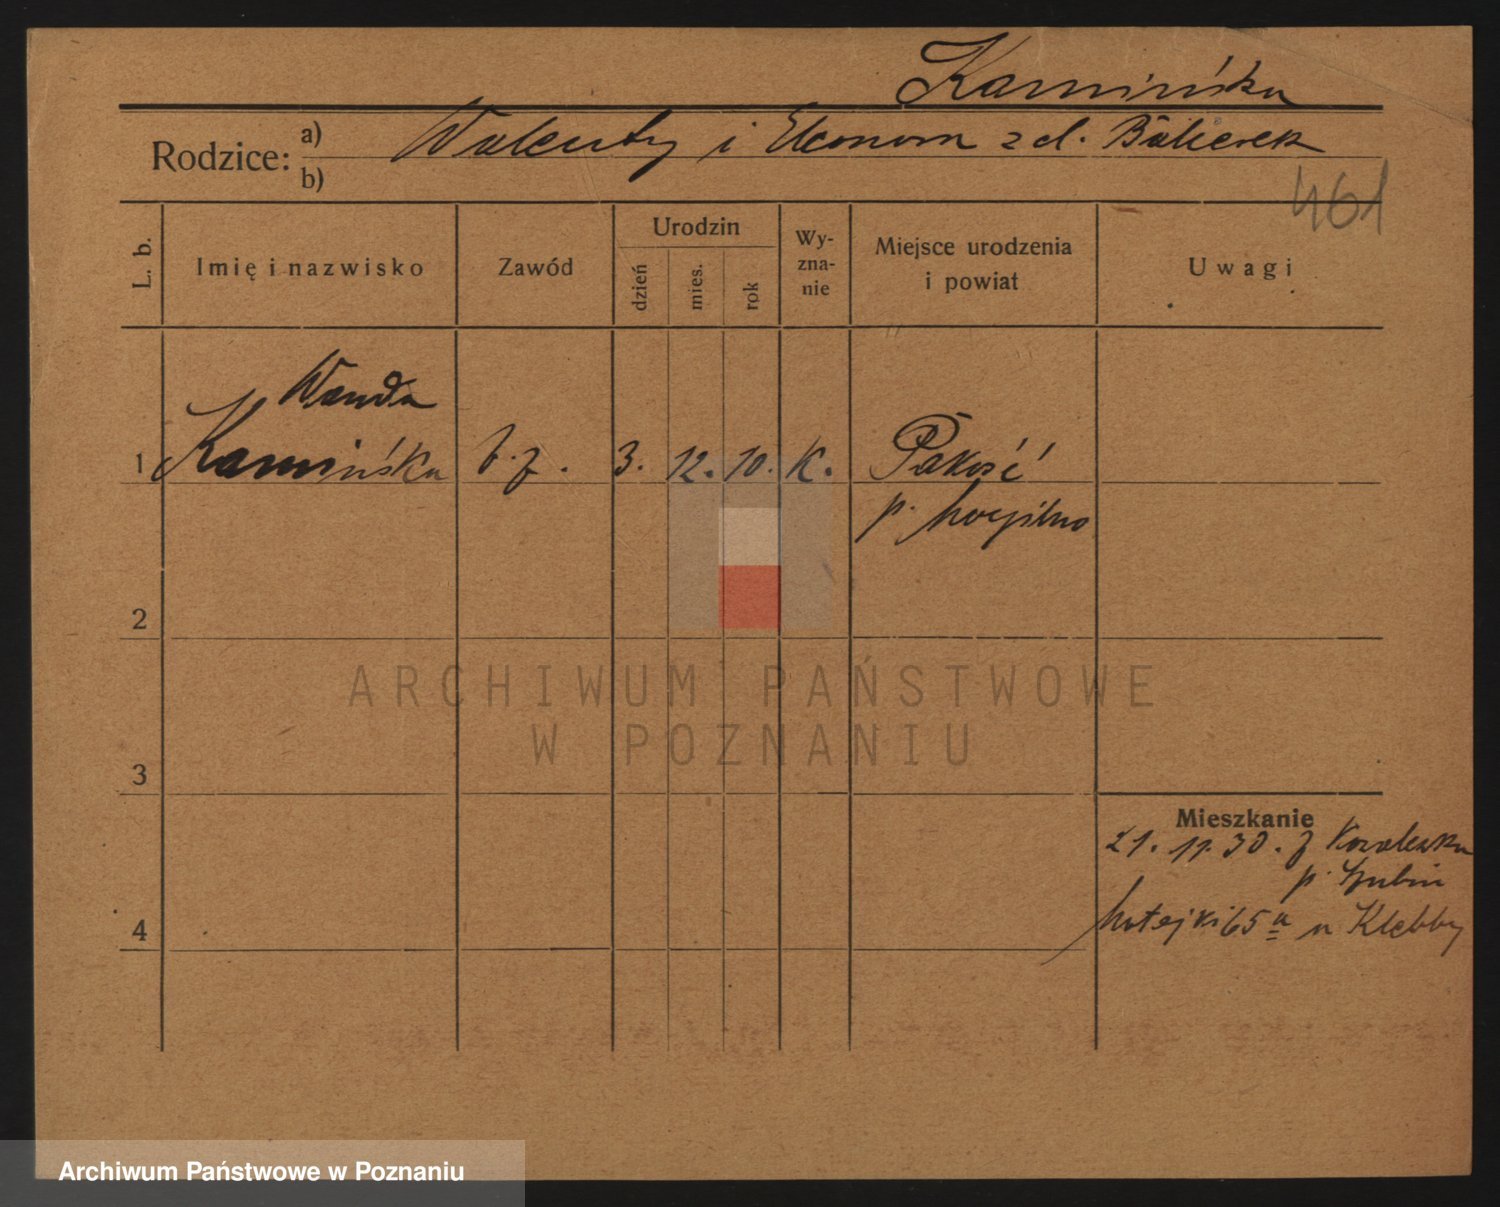 Kamińska
Rodzice: a) Walenty i Eleonora z d.
b)
461
L. b.
Imię i nazwisko
Zawód
Urodzin
dzień
mies.
rok
Wy-
zna-
nie
Miejsce urodzenia
i powiat
Uwagi
Wanda
1 Kamińska b. z. 3. 12. 10. K. Pakość
p. Mogilno
2
3
4
Mieszkanie
21. 11. 30. z
p. Szubin
Matejki 65a u
ARCHIWUM PAŃSTWOWE
W POZNANIU
Archiwum Państwowe w Poznaniu